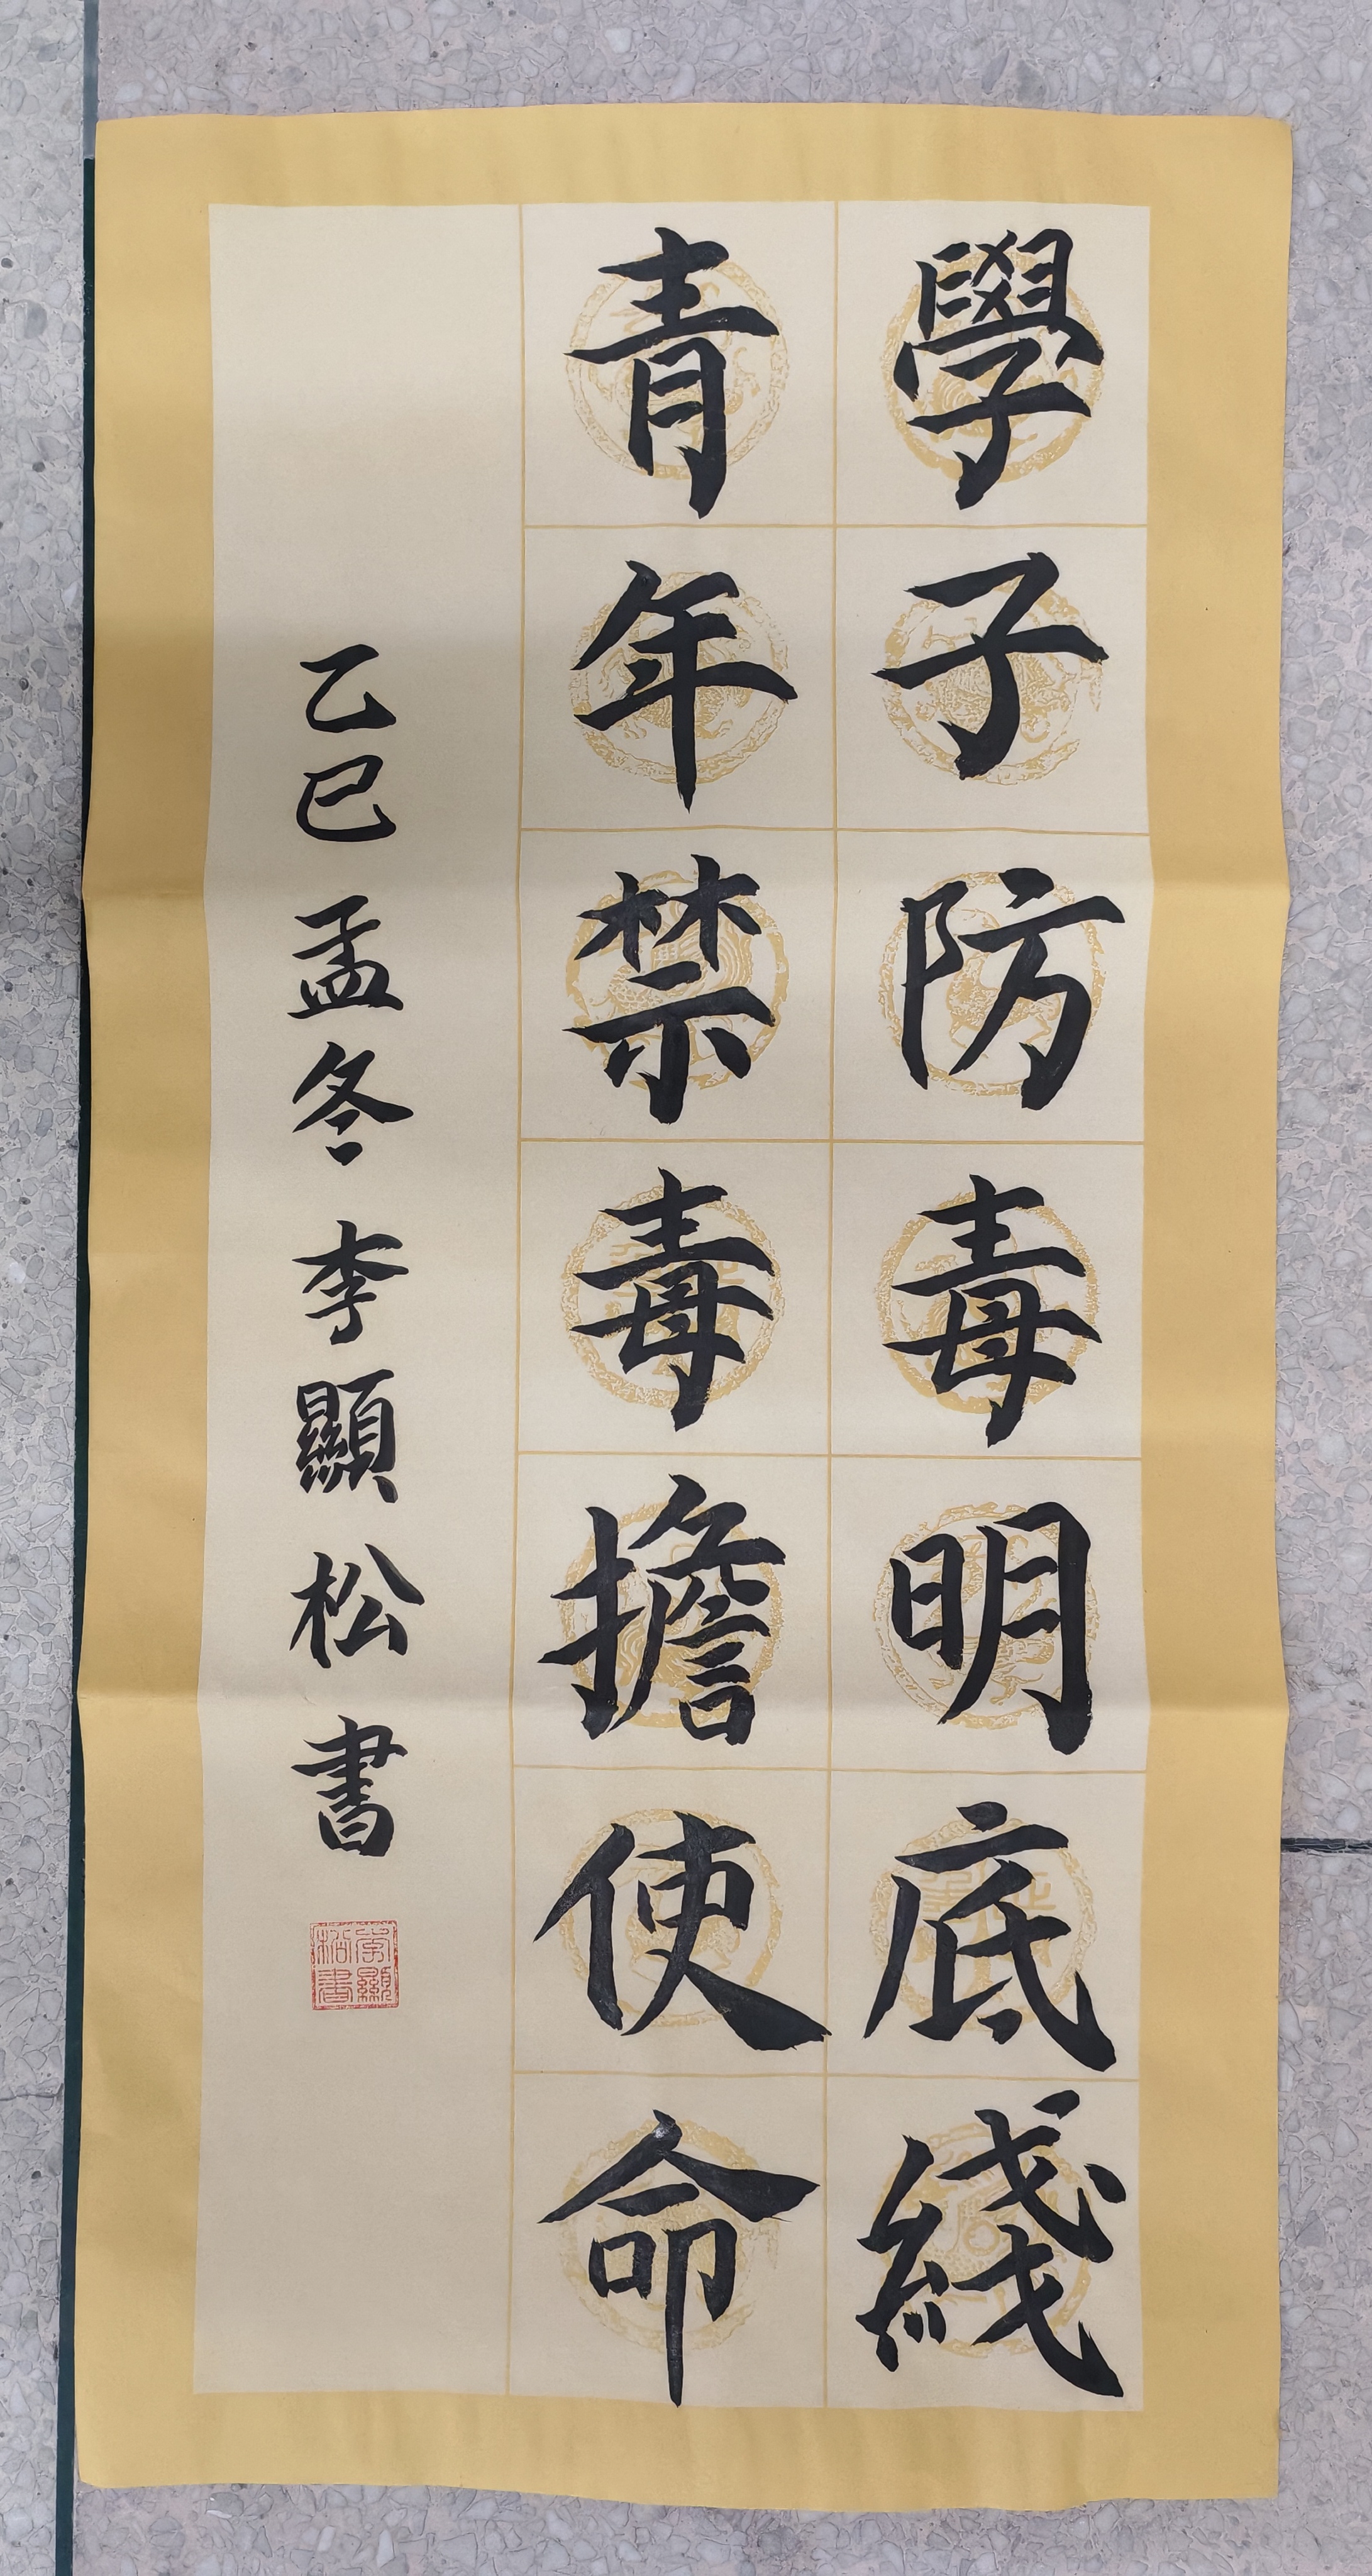 學子防毒明底綫
青年禁毒擔使命
乙巳孟冬李顯松書
李顯松書